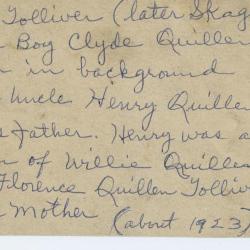 Tolliver (later Skag
Boy Clyde Quillen
in in background
Uncle Henry Quillen
s father. Henry was a
n of Willie Quillen
Florence Quillen Tollive
Mother (about 1923)